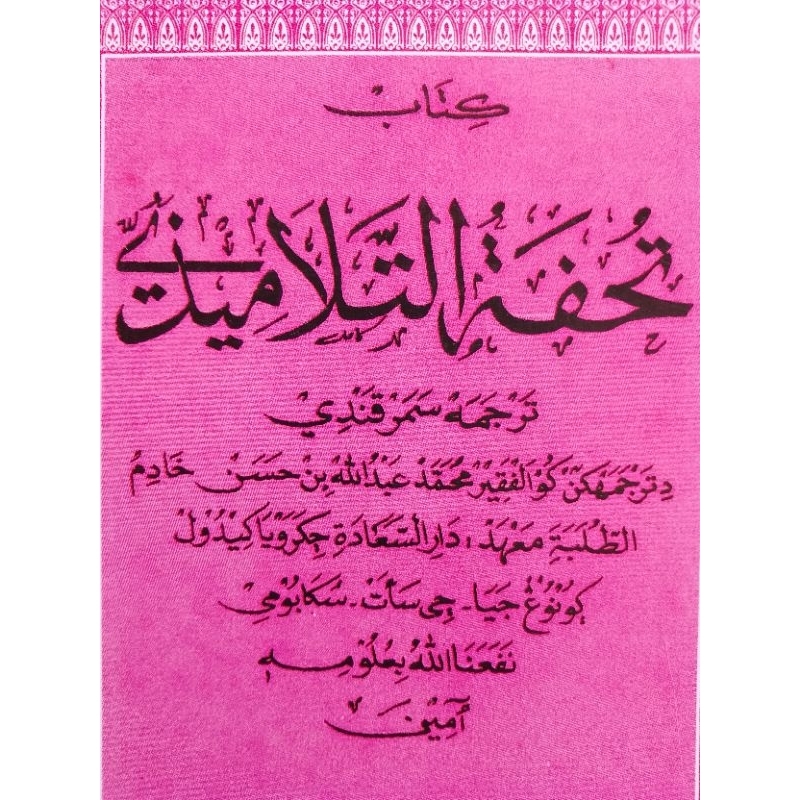 كِتَابْ
تُحْفَةُ التَّلَامِيْذِيّ
تَرْجَمَهْ سَمَرْقَنْدِيْ
دِتَرْجَمَهَكَنْ كُو الفَقِيْر مُحَمَّدْ عَبْدُ اللهْ بِنْ حَسَنْ خَادِمُ
الطَّلَبَةِ مَعْهَدْ، دَارِ السَّعَادَةِ چِكَرَوْيَا كِيْدُوْلْ
ڮُوْنُوْڠْ جَيَا - چِی سَأَتْ - سُكَابُوْمِيْ
نَفَعَنَا اللهُ بِعُلُوْمِهِ
أٰمِيْنَ